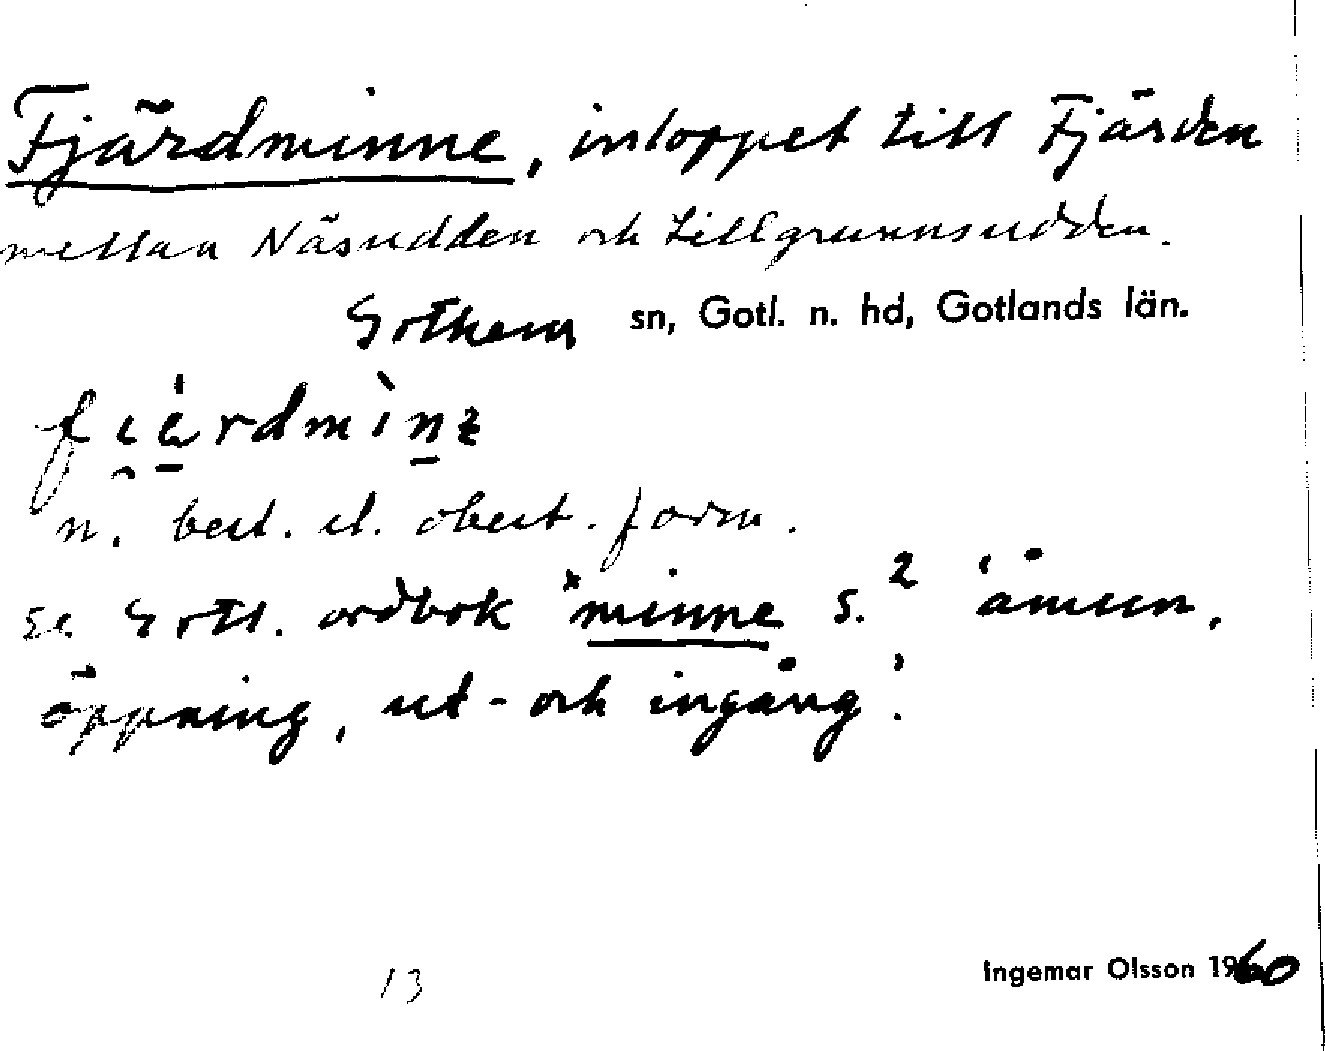 Fjärdminne, inloppet till Fjärden
mellan Näsudden och Lillgrunnsudden.
Gothem sn, Gotl. n. hd, Gotlands län.
n. best. el. obest. form.
se Gotl. ordbok *minne s.² 'åmun,
öppning, ut- och ingång'.
13 Ingemar Olsson 1960